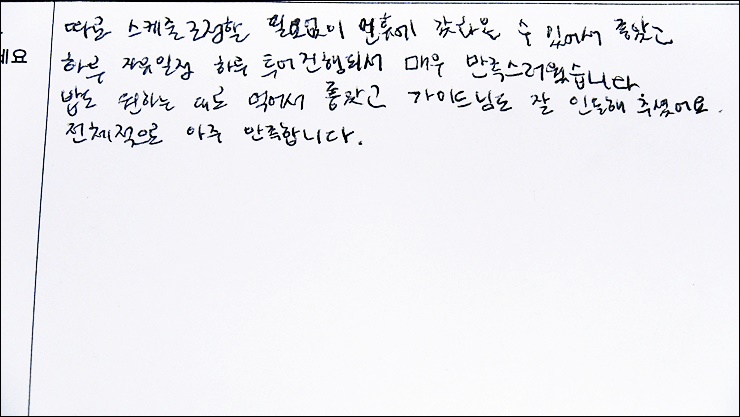 따로 스케줄 조정할 필요없이 연휴에 갔다올 수 있어서 좋았고
세요
하루 자유일정 하루 투어진행되서 매우 만족스러웠습니다
밥도 원하는 대로 먹어서 좋았고 가이드님도 잘 인도해 주셨어요.
전체적으로 아주 만족합니다.